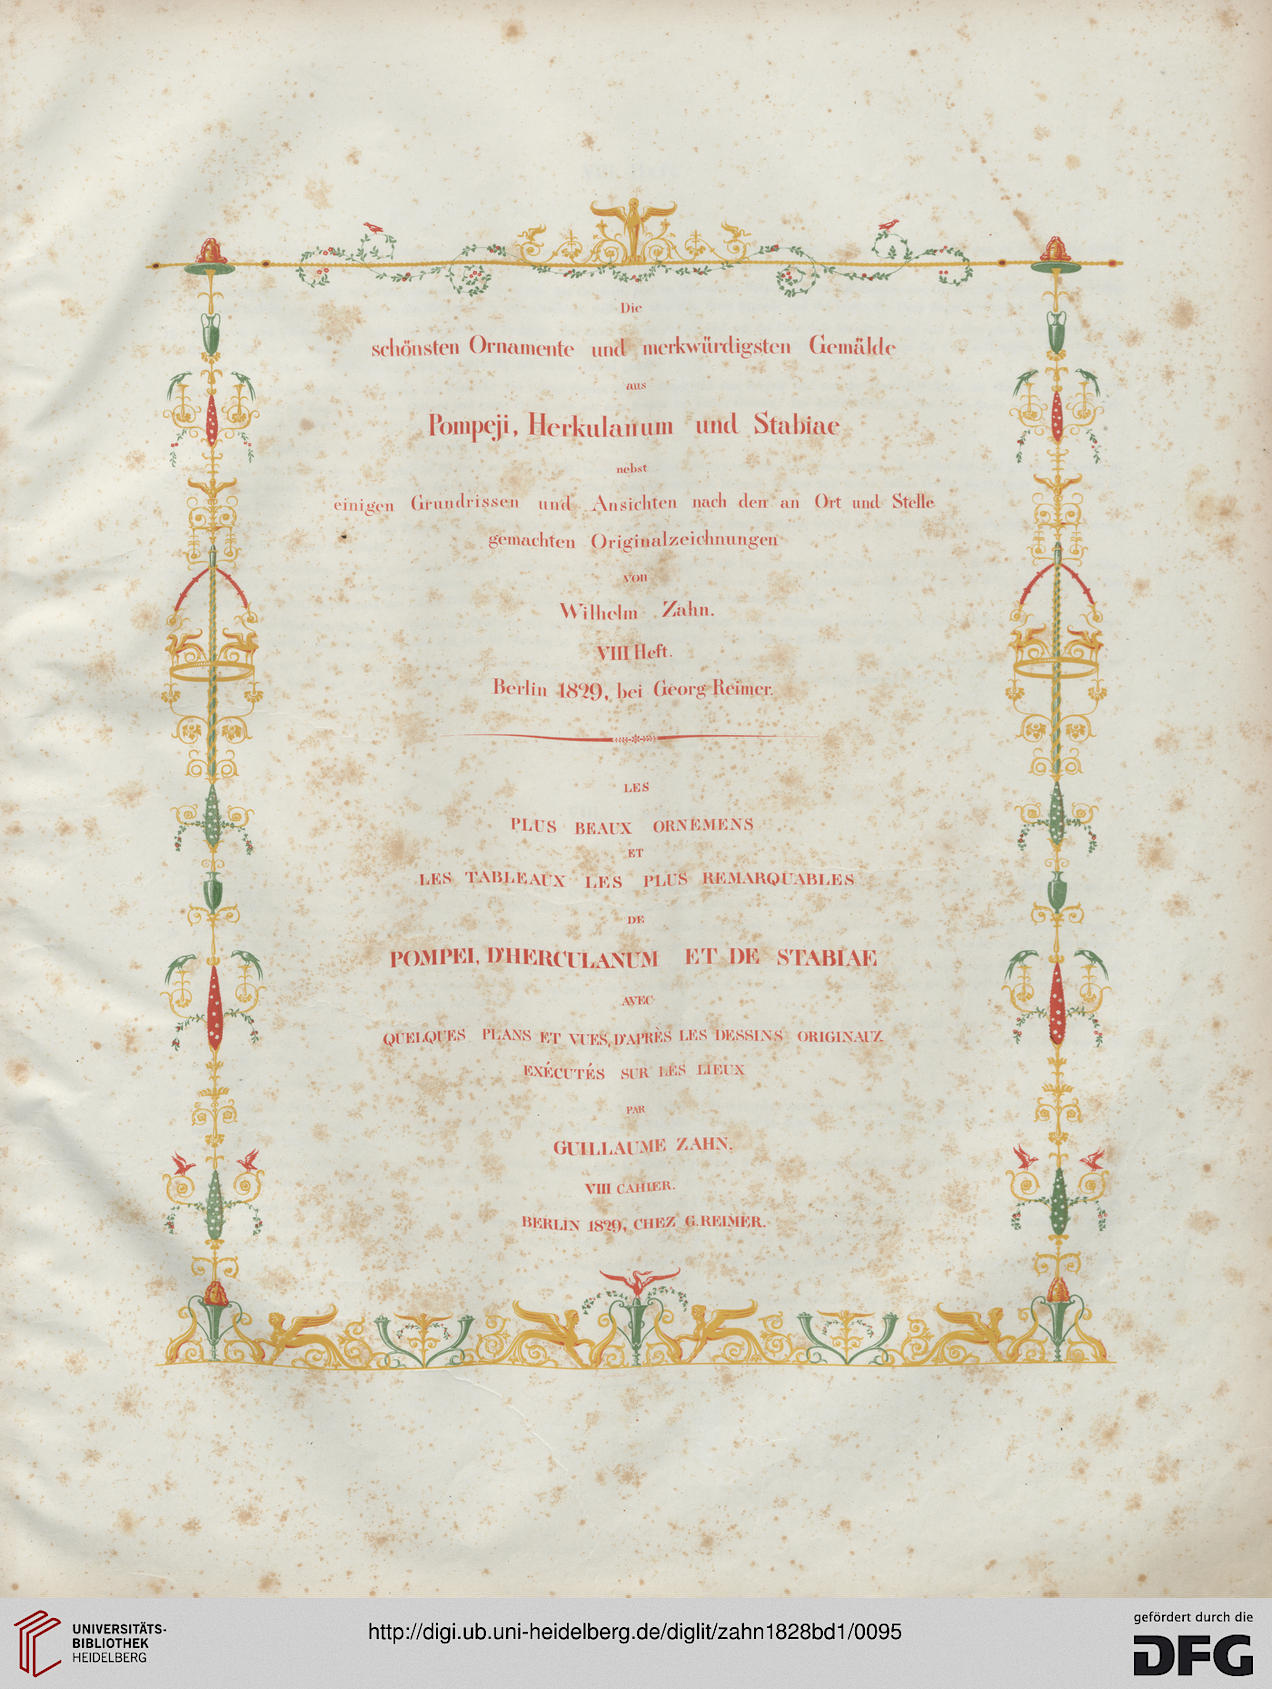 Die
schönsten Ornamente und merkwürdigsten Gemälde
aus
Pompeji, Herkulanum und Stabiae
nebst
einigen Grundrissen und Ansichten nach den an Ort und Stelle
gemachten Originalzeichnungen
von
Wilhelm Zahn.
VIII Heft.
Berlin 1829, bei Georg Reimer.
LES
PLUS BEAUX ORNEMENS
ET
LES TABLEAUX LES PLUS REMARQUABLES
DE
POMPEI, D'HERCULANUM ET DE STABIAE
AVEC
QUELQUES PLANS ET VUES, D'APRÈS LES DESSINS ORIGINAUX
EXÉCUTÉS SUR LES LIEUX
PAR
GUILLAUME ZAHN.
VIII CAHIER.
BERLIN 1829, CHEZ G. REIMER.
UNIVERSITÄTS-
BIBLIOTHEK
HEIDELBERG
http://digi.ub.uni-heidelberg.de/diglit/zahn1828bd1/0095
gefördert durch die
DFG